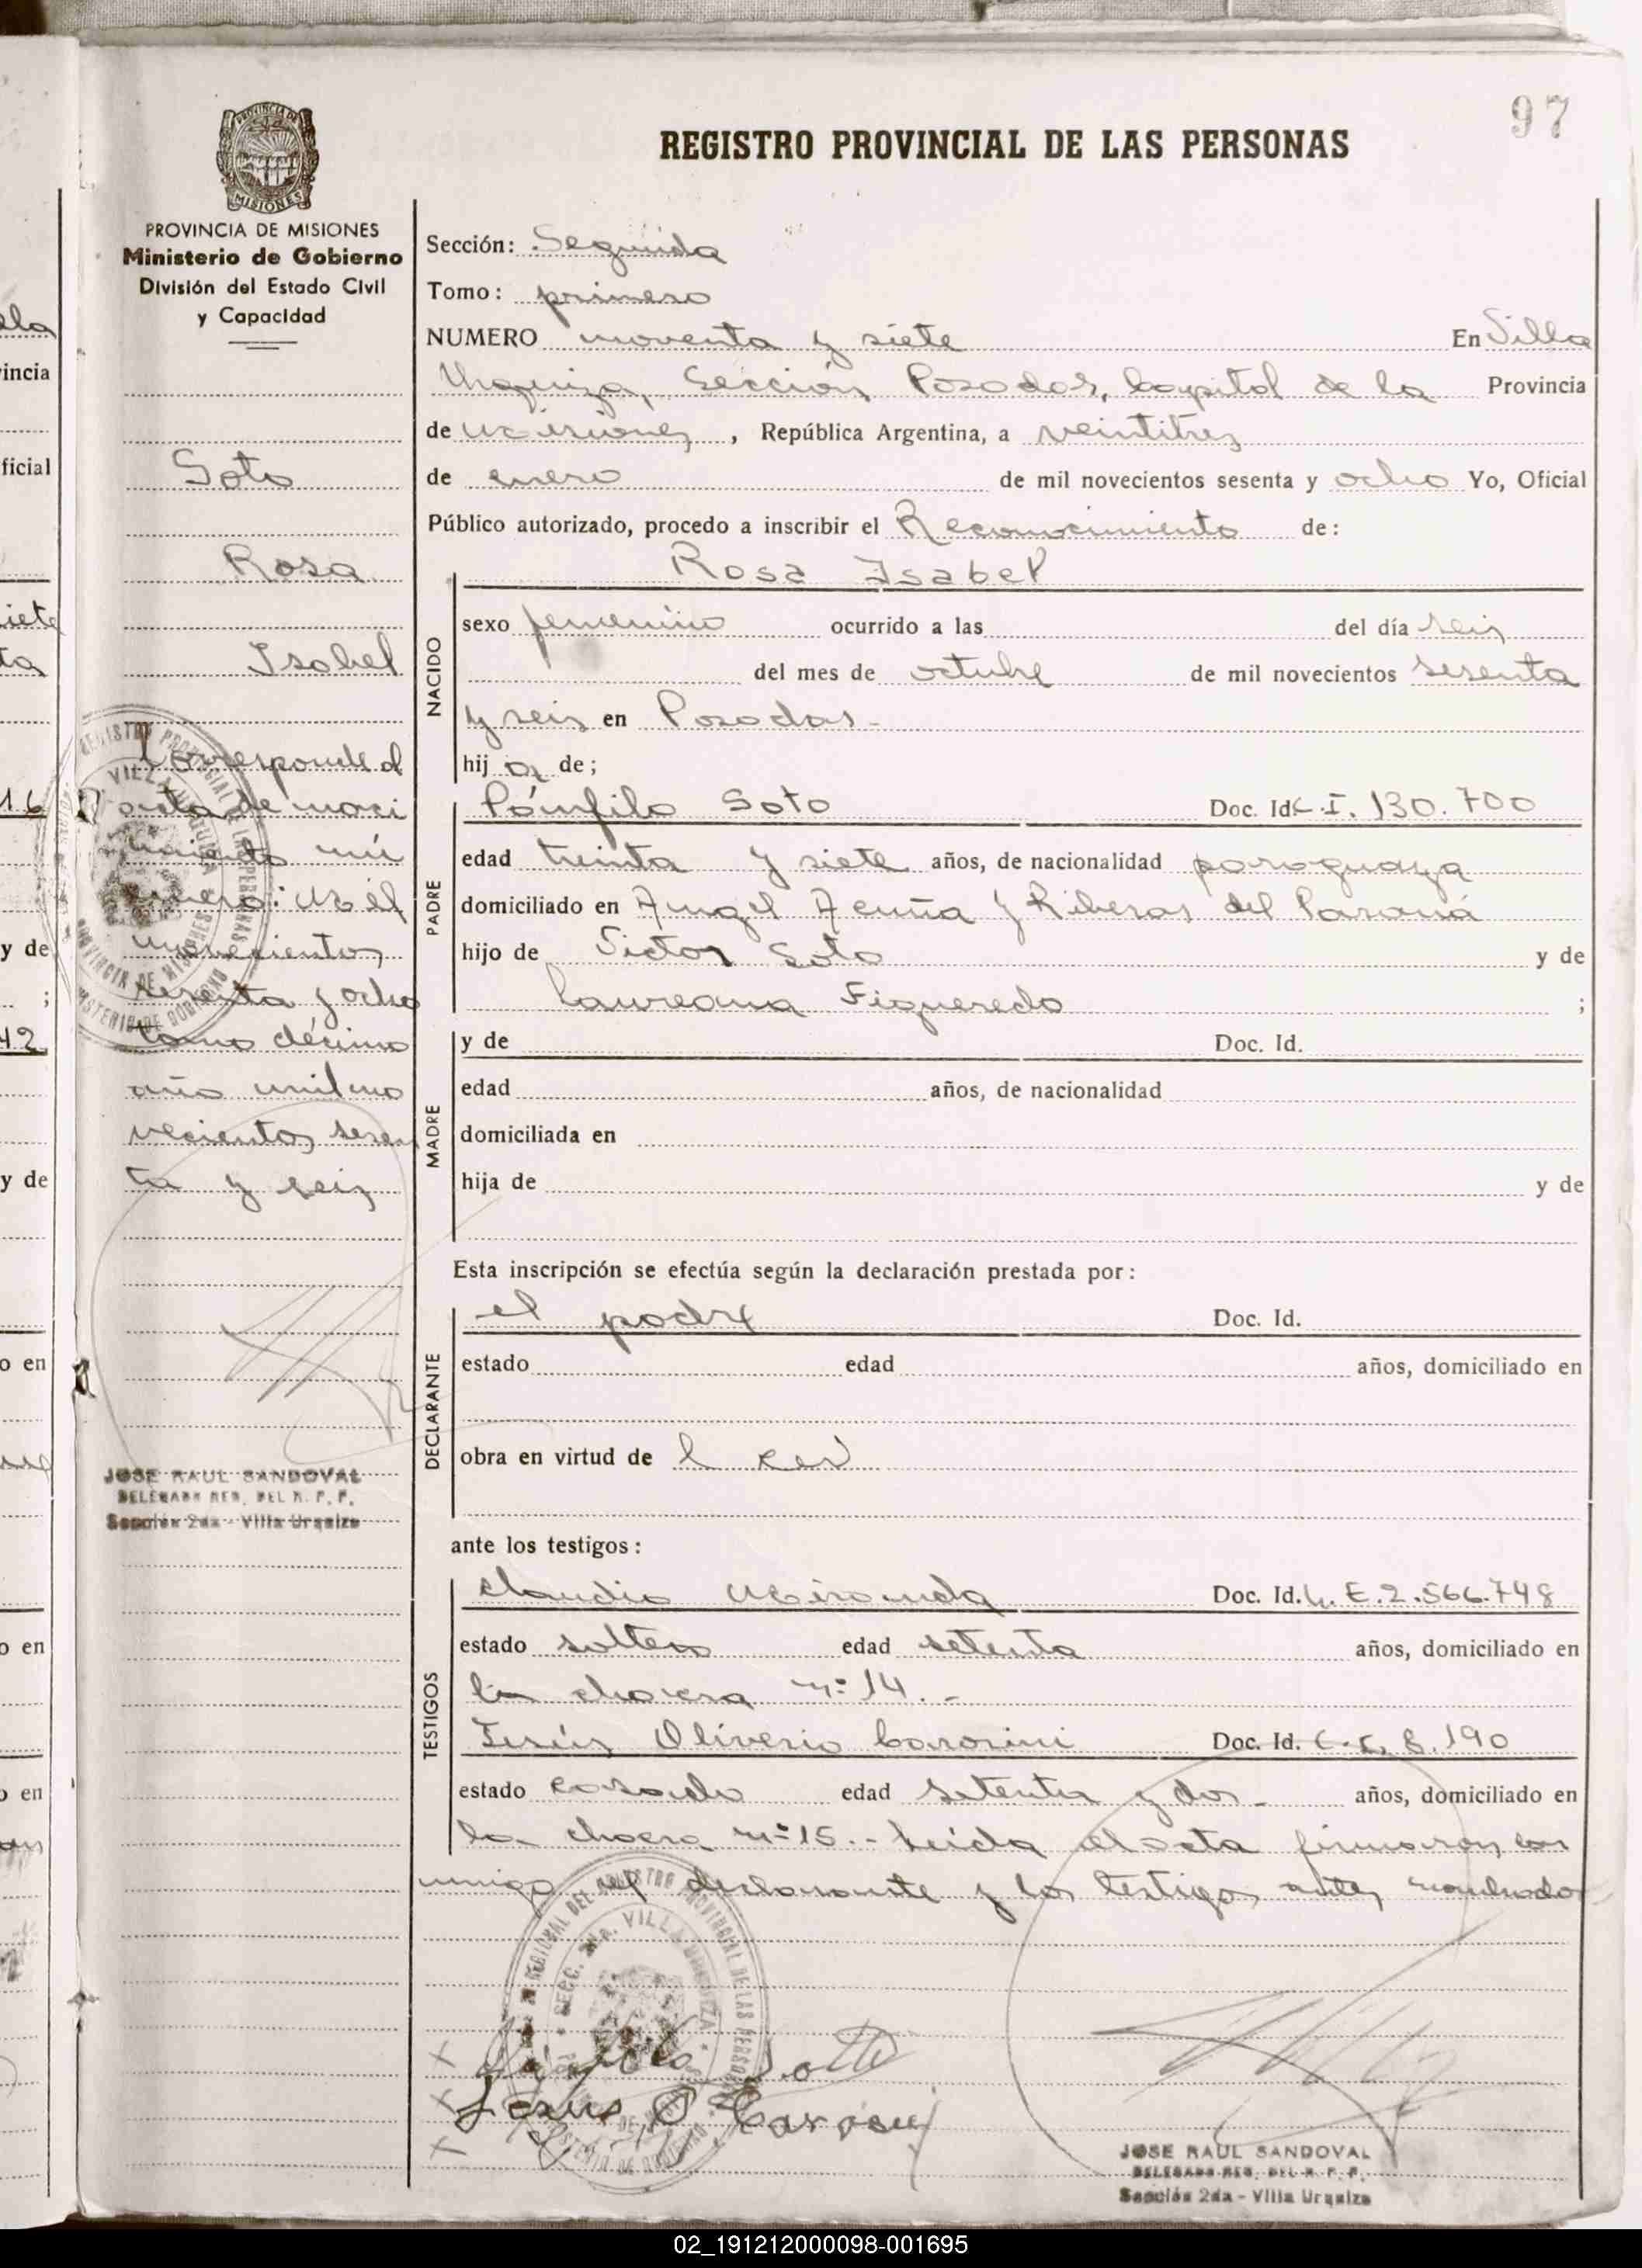 97
REGISTRO PROVINCIAL DE LAS PERSONAS
PROVINCIA DE MISIONES
MISIONES
PROVINCIA DE MISIONES
Ministerio de Gobierno
División del Estado Civil
y Capacidad
Soto
Rosa
Isabel
Corresponde al
acta de naci
miento nú
mero: Mil
novecientos
sesenta y ocho
tomo décimo
año mil no
vecientos sesen
ta y seis
JOSE RAUL SANDOVAL
DELEGADO REG. DEL R. P. P.
Sección 2da - Villa Urquiza
Sección: Segunda
Tomo: primero
NUMERO noventa y siete En Villa
Urquiza, Sección Posadas, Capital de la Provincia
de Misiones, República Argentina, a veintitres
de enero de mil novecientos sesenta y ocho Yo, Oficial
Público autorizado, procedo a inscribir el Reconocimiento de:
NACIDO
Rosa Isabel
sexo femenino ocurrido a las del día seis
del mes de octubre de mil novecientos sesenta
y seis en Posadas.-
hij a de;
PADRE
Pánfilo Soto Doc. Id. C.I. 130.700
edad treinta y siete años, de nacionalidad paraguaya
domiciliado en Angel Acuña y Riberas del Paraná
hijo de Victor Soto y de
Laureana Figueredo ;
MADRE
y de Doc. Id.
edad años, de nacionalidad
domiciliada en
hija de y de
Esta inscripción se efectúa según la declaración prestada por:
DECLARANTE
el padre Doc. Id.
estado edad años, domiciliado en
obra en virtud de
ante los testigos:
TESTIGOS
Claudio Miranda Doc. Id. L.E. 2.566.748
estado soltero edad setenta años, domiciliado en
la chacra nº 14.-
Jesús Oliverio Doc. Id. 8.190
estado casado edad setenta y dos.- años, domiciliado en
la chacra nº 15.- Leída el acta firmaron con
migo el declarante y los testigos antes nombrados
Soto
Jesus O
JOSE RAUL SANDOVAL
DELEGADO REG. DEL R. P. P.
Sección 2da - Villa Urquiza
02_191212000098-001695